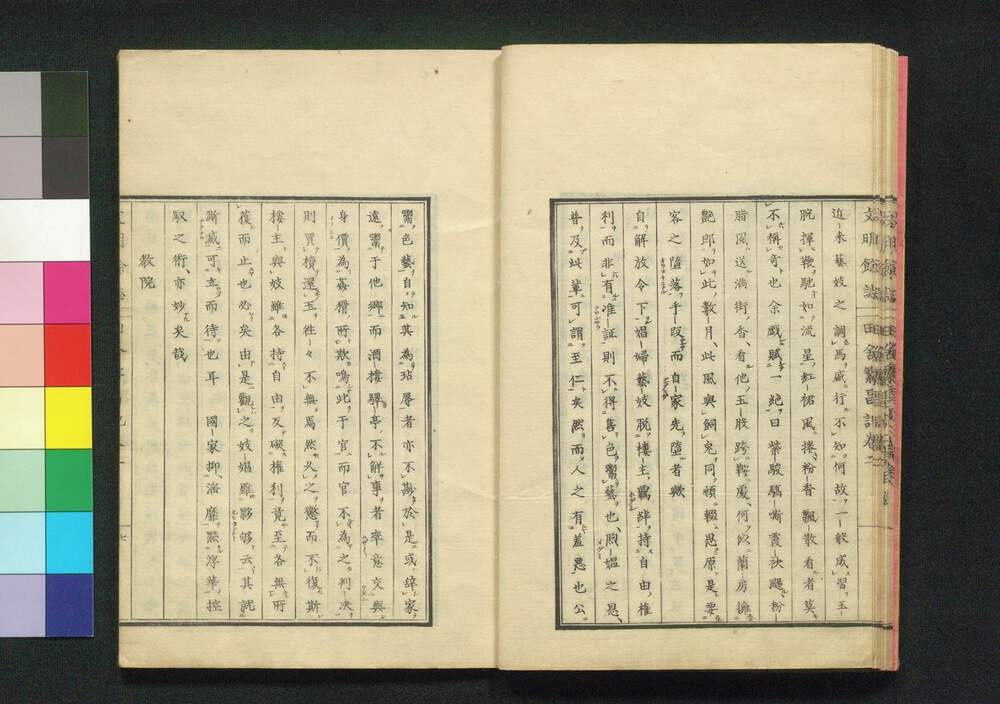 近来藝妓之調馬盛行不知何故一般成習玉
腕揮鞭馳如流星紅裙風捲粉香飄散看者莫
不稱奇也余戲賦一絶曰紫駿驕嘶霞袂颺粉
脂風送滿街香看他玉股跨鞍處何似蘭房擁
艶郎如此數月此風與飼兎同頓輟思原是要
客之墮落手段而自家先墮者歟
自解放令下娼婦藝妓脱樓主羈絆持自由權
利而非有准証則不得售色鬻藝也煦嫗之恩
普及此輩可謂至仁矣然而人之有羞惡也公
鬻色藝自知其為玷辱者亦不尠於是或辭家
遠鬻于他鄉而酒樓驛亭不解事者率意交與
身價為所欺鳴此于官而官不為之判决
則買櫝還玉往々不無焉然久之懲而不復斯
樓主與妓雖各持自由互礙權利竟至各無所
獲而止也必矣由是觀之妓娼雖夥够云其就
澌滅可立而待也耳　國家抑滔靡黜浮華控
馭之術亦妙矣哉
教院